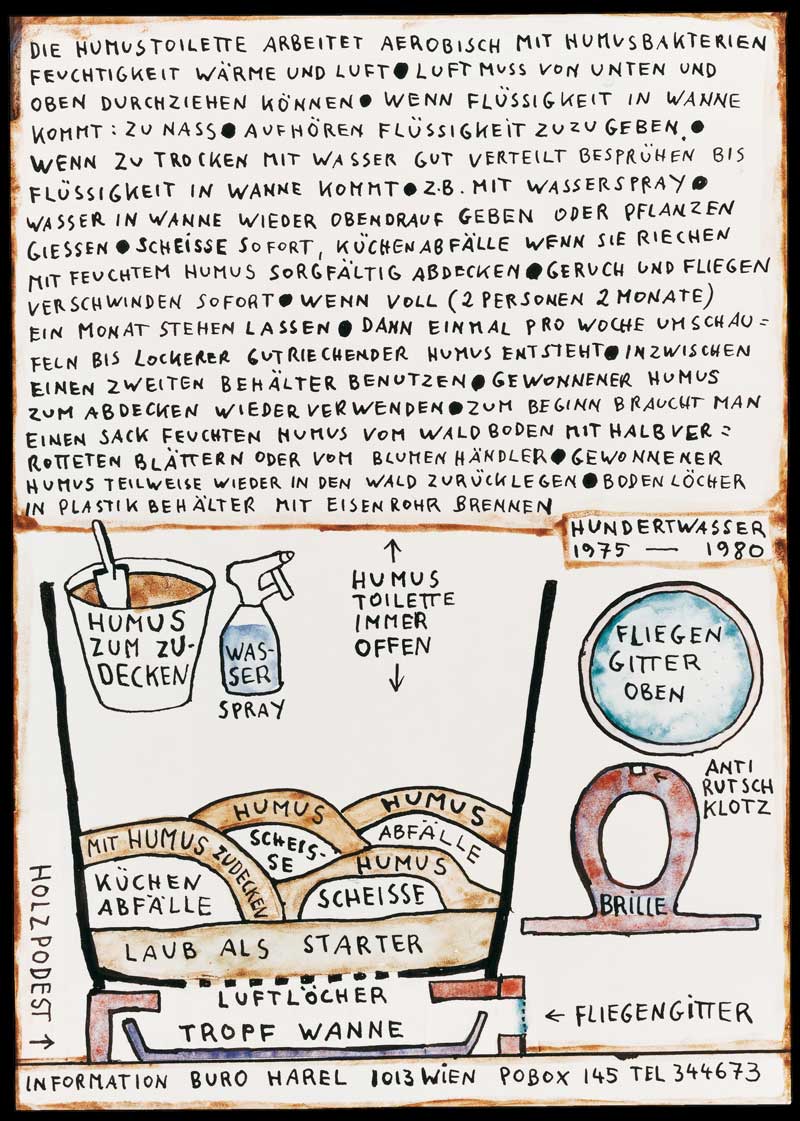 DIE HUMUSTOILETTE ARBEITET AEROBISCH MIT HUMUSBAKTERIEN
FEUCHTIGKEIT WÄRME UND LUFT ● LUFT MUSS VON UNTEN UND
OBEN DURCHZIEHEN KÖNNEN ● WENN FLÜSSIGKEIT IN WANNE
KOMMT: ZU NASS ● AUFHÖREN FLÜSSIGKEIT ZUZUGEBEN. ●
WENN ZU TROCKEN MIT WASSER GUT VERTEILT BESPRÜHEN BIS
FLÜSSIGKEIT IN WANNE KOMMT ● Z.B. MIT WASSERSPRAY ●
WASSER IN WANNE WIEDER OBENDRAUF GEBEN ODER PFLANZEN
GIESSEN ● SCHEISSE SOFORT, KÜCHENABFÄLLE WENN SIE RIECHEN
MIT FEUCHTEM HUMUS SORGFÄLTIG ABDECKEN ● GERUCH UND FLIEGEN
VERSCHWINDEN SOFORT ● WENN VOLL (2 PERSONEN 2 MONATE)
EIN MONAT STEHEN LASSEN ● DANN EINMAL PRO WOCHE UMSCHAU=
FELN BIS LOCKERER GUTRIECHENDER HUMUS ENTSTEHT ● INZWISCHEN
EINEN ZWEITEN BEHÄLTER BENUTZEN ● GEWONNENER HUMUS
ZUM ABDECKEN WIEDER VERWENDEN ● ZUM BEGINN BRAUCHT MAN
EINEN SACK FEUCHTEN HUMUS VOM WALDBODEN MIT HALBVER=
ROTTETEN BLÄTTERN ODER VOM BLUMENHÄNDLER ● GEWONNENER
HUMUS TEILWEISE WIEDER IN DEN WALD ZURÜCKLEGEN ● BODENLÖCHER
IN PLASTIKBEHÄLTER MIT EISENROHR BRENNEN
HUNDERTWASSER
1975 — 1980
HUMUS
ZUM ZU-
DECKEN
WAS-
SER
SPRAY
↑
HUMUS
TOILETTE
IMMER
OFFEN
↓
FLIEGEN
GITTER
OBEN
ANTI
RUTSCH
KLOTZ
←
BRILLE
HUMUS
SCHEIS-
SE
HUMUS
ABFÄLLE
MIT HUMUS ZUDECKEN
KÜCHEN
ABFÄLLE
HUMUS
SCHEISSE
LAUB ALS STARTER
LUFTLÖCHER
TROPF WANNE
HOLZPODEST →
← FLIEGENGITTER
INFORMATION BURO HAREL 1013 WIEN POBOX 145 TEL 344673